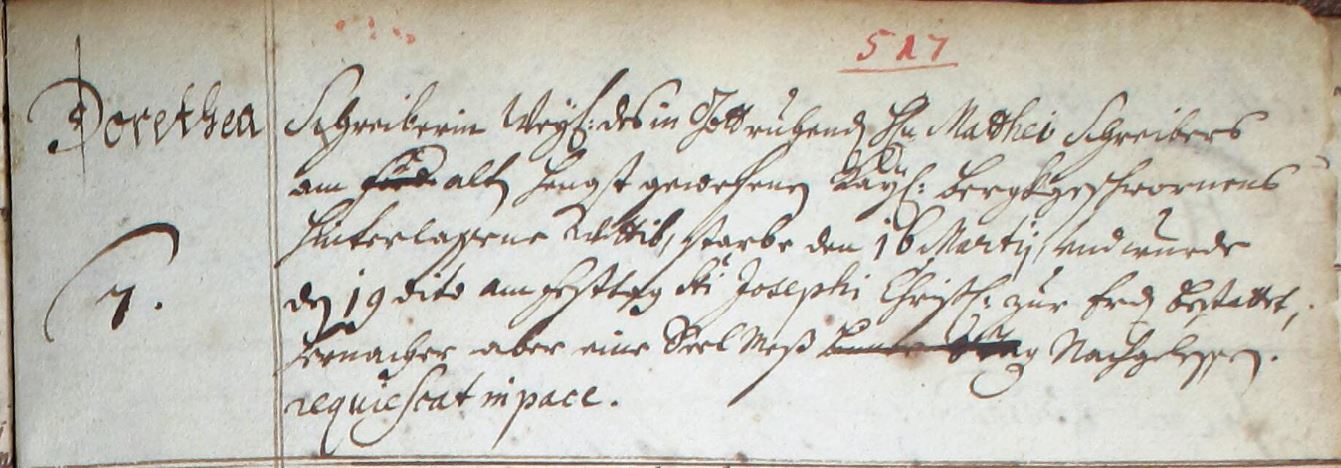 517
Dorethea Schreiberin Weyl: des in Gott ruhend Hn Matthei Schreibers
am alten Hengst gewesenen Kayl: Bergkgeschwornens
hinterlassene Wittib, starbe den 16 Martij, und wurde
7. den 19 dito am Festtag Sti Josephi Christl: zur Erd bestattet,
hernacher aber eine Seel Meß Nachgelessen.
requiescat in pace.